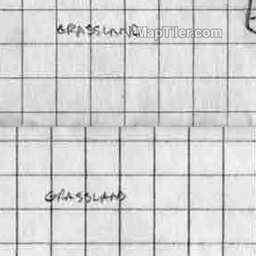 GRASSLAND
MapTiler.com
GRASSLAND